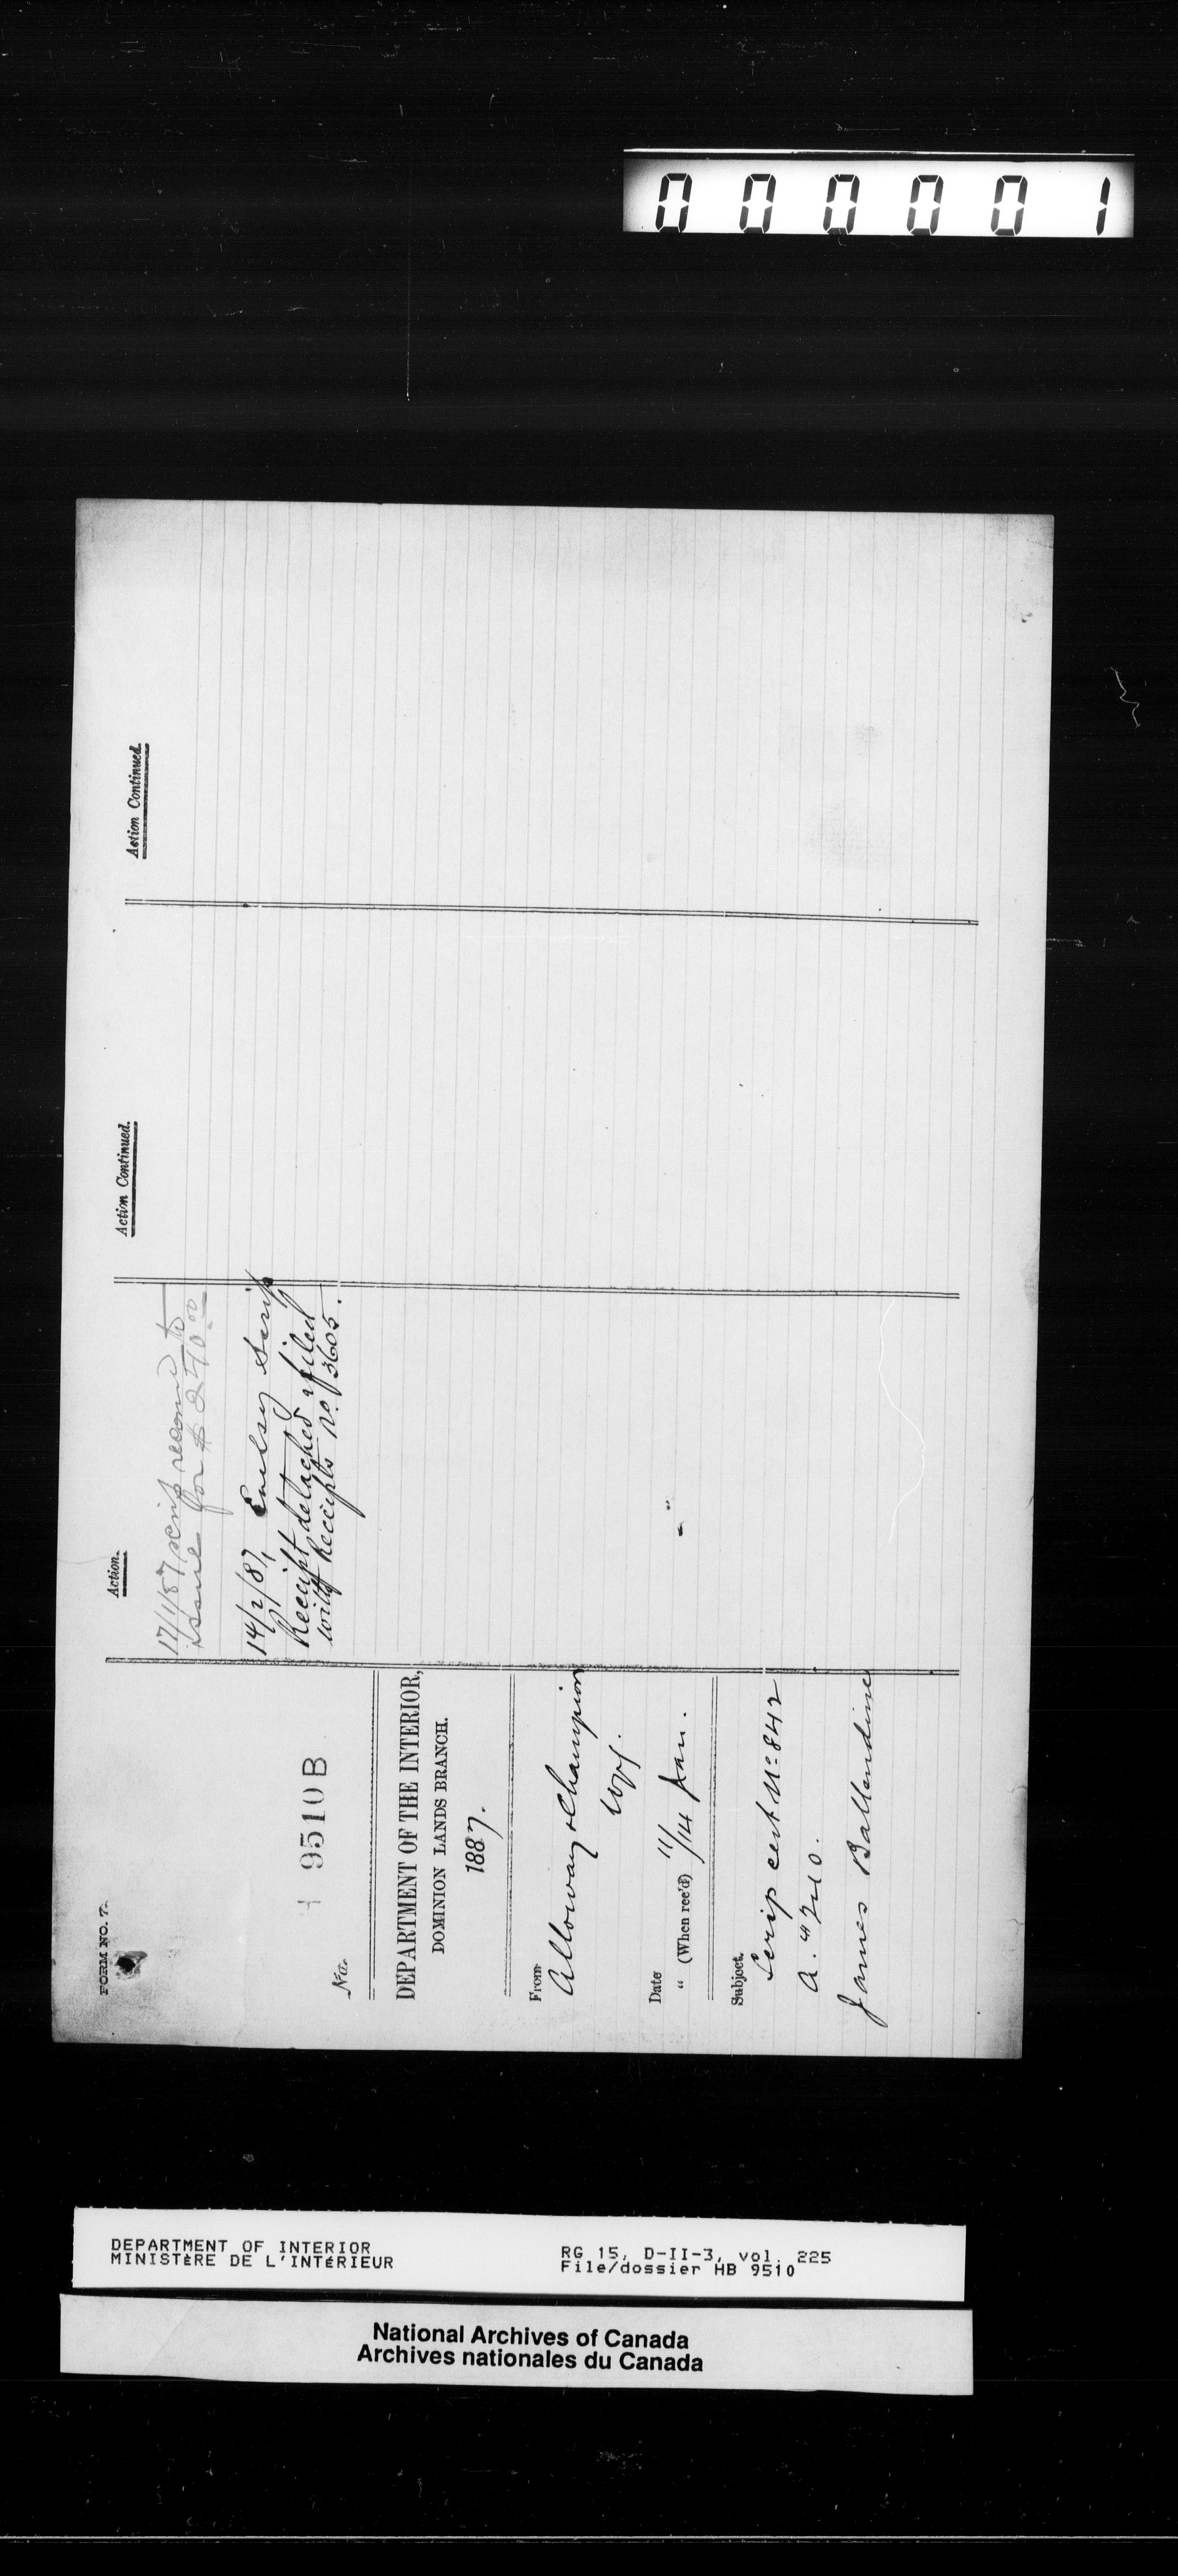 000001
FORM NO. 7.
H 9510 B
No.
DEPARTMENT OF THE INTERIOR,
DOMINION LANDS BRANCH.
1887.
From
Alloway & Champion
Wpg.
Date 11/
" (When rec'd) /14 Jan.
Subject.
Scrip cert No 842
A. $240.
James Ballendine
Action.
17/1/87 scrip recomd to
issue for $240.00
14/2/87, Enclsg Scrip
Receipt detached & filed
with Receipts No. 3605.
Action Continued.
Action Continued.
DEPARTMENT OF INTERIOR
MINISTÈRE DE L'INTÉRIEUR
RG 15, D-II-3, vol. 225
File/dossier HB 9510
National Archives of Canada
Archives nationales du Canada